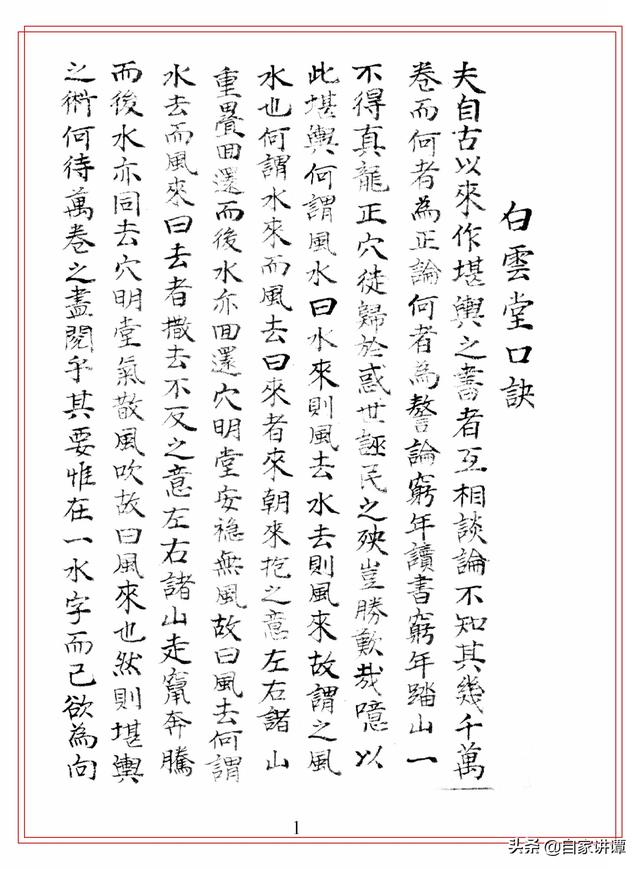 白雲堂口訣
夫自古以來作堪輿之書者互相談論不知其幾千萬
卷而何者為正論何者為謷論窮年讀書窮年踏山一
不得真龍正穴徒歸於惑世誣民之殃豈勝歎哉噫以
此堪輿何謂風水曰水來則風去水去則風來故謂之風
水也何謂水來而風去曰來者來朝來抱之意左右諸山
重疊回還而後水亦回還穴明堂安穩無風故曰風去何謂
水去而風來曰去者撒去不反之意左右諸山走竄奔騰
而後水亦同去穴明堂氣散風吹故曰風來也然則堪輿
之術何待萬卷之盡閱乎其要惟在一水字而已欲為向
1
头条 @自家讲谭